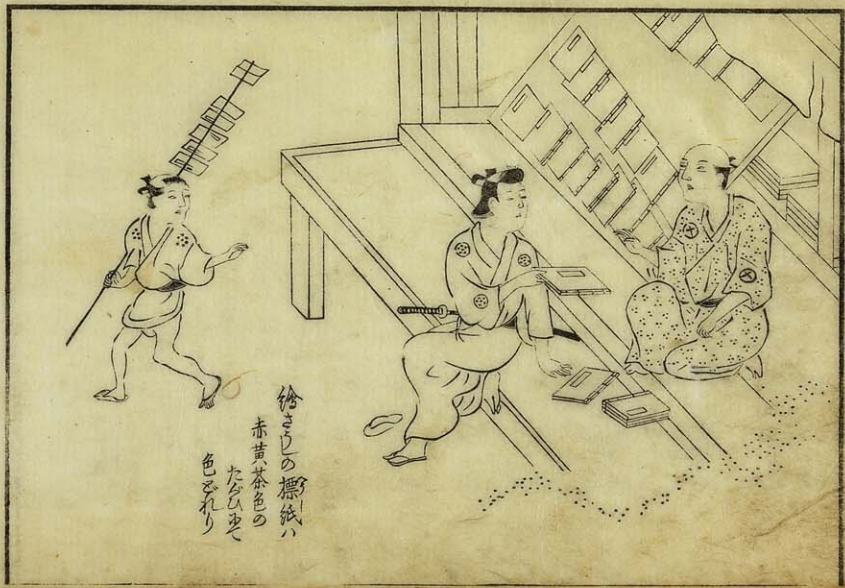 繪さうしの標紙ハ
赤黄茶色の
たぐひにて
色どれり